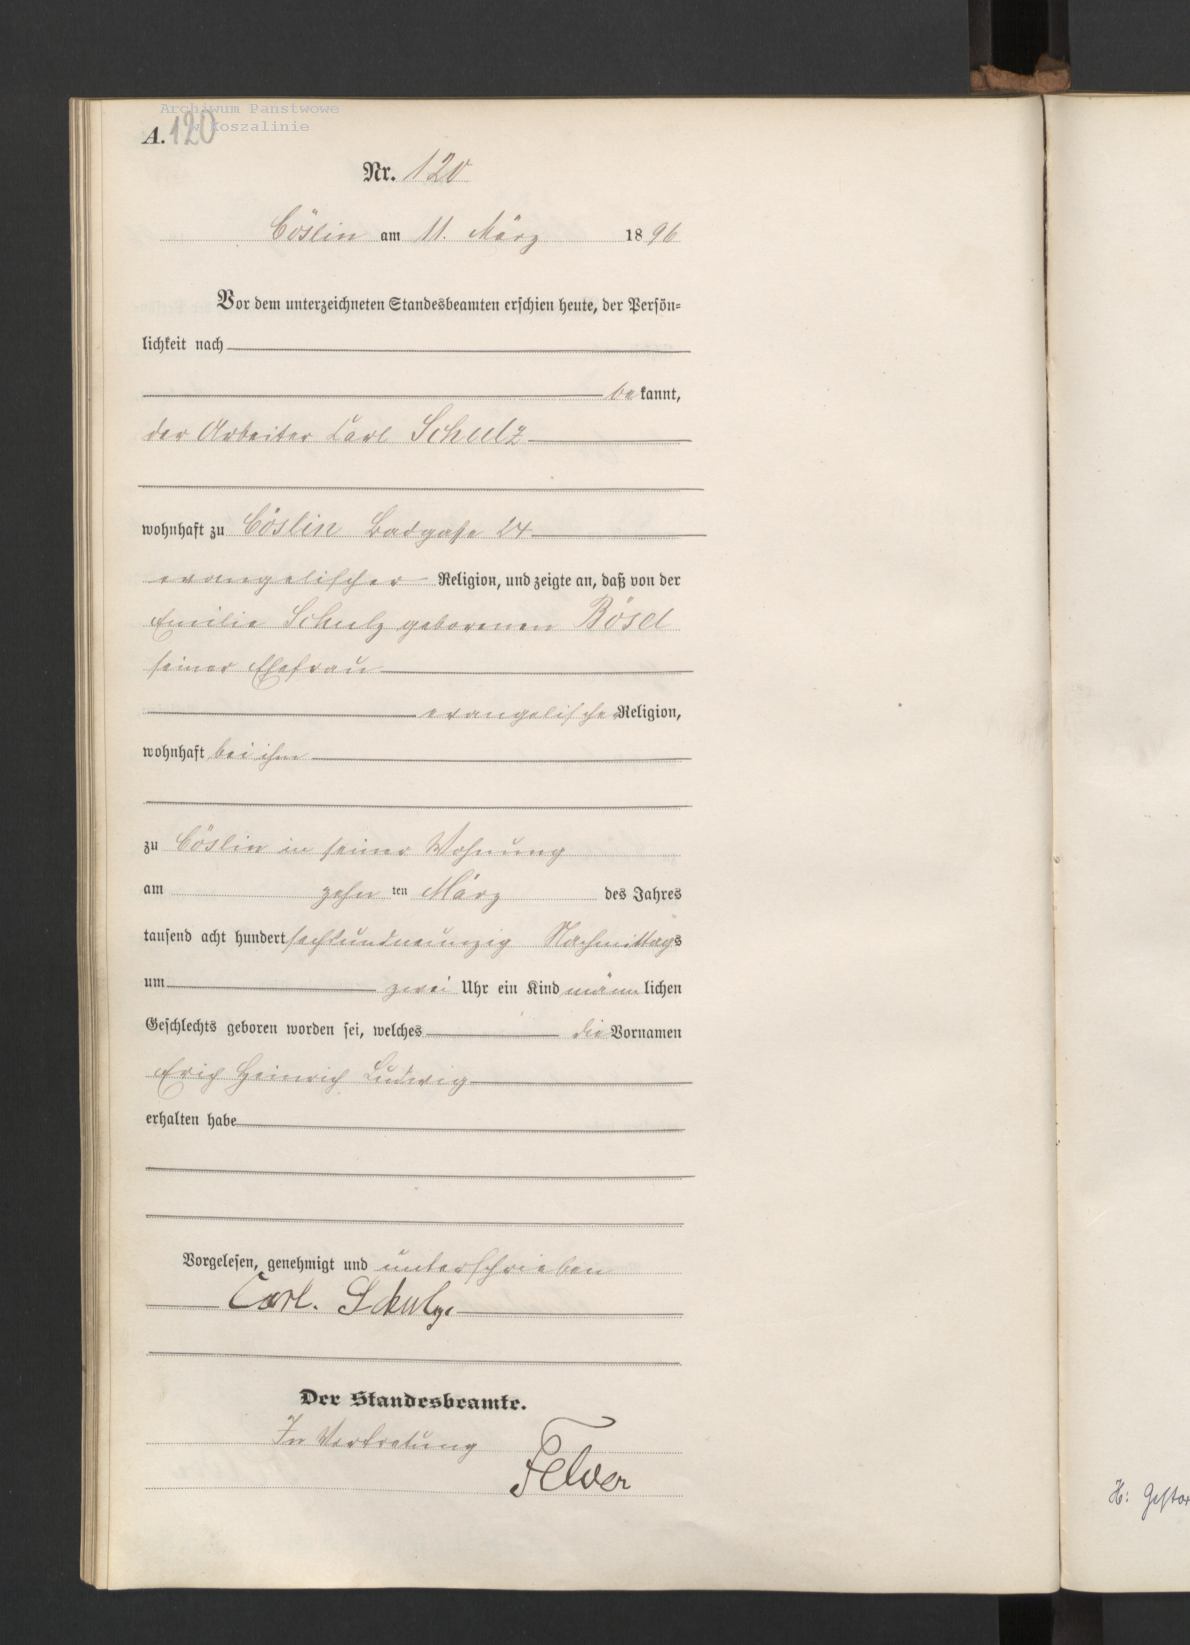 Archiwum Panstwowe
w Koszalinie
A. 120
Nr. 120
Cöslin am 11. März 1896
Vor dem unterzeichneten Standesbeamten erschien heute, der Persön-
lichkeit nach
bekannt,
der Arbeiter Carl Schulz
wohnhaft zu Cöslin Badgasse 24
evangelischer Religion, und zeigte an, daß von der
Emilie Schulz geborenen Bösel
seiner Ehefrau
evangelischer Religion,
wohnhaft bei ihm
zu Cöslin in seiner Wohnung
am zehn ten März des Jahres
tausend acht hundert sechsundneunzig Nachmittags
um zwei Uhr ein Kind männlichen
Geschlechts geboren worden sei, welches die Vornamen
Erich Heinrich Ludwig
erhalten habe
Vorgelesen, genehmigt und unterschrieben
Carl. Schulz.
Der Standesbeamte.
In Vertretung
H: